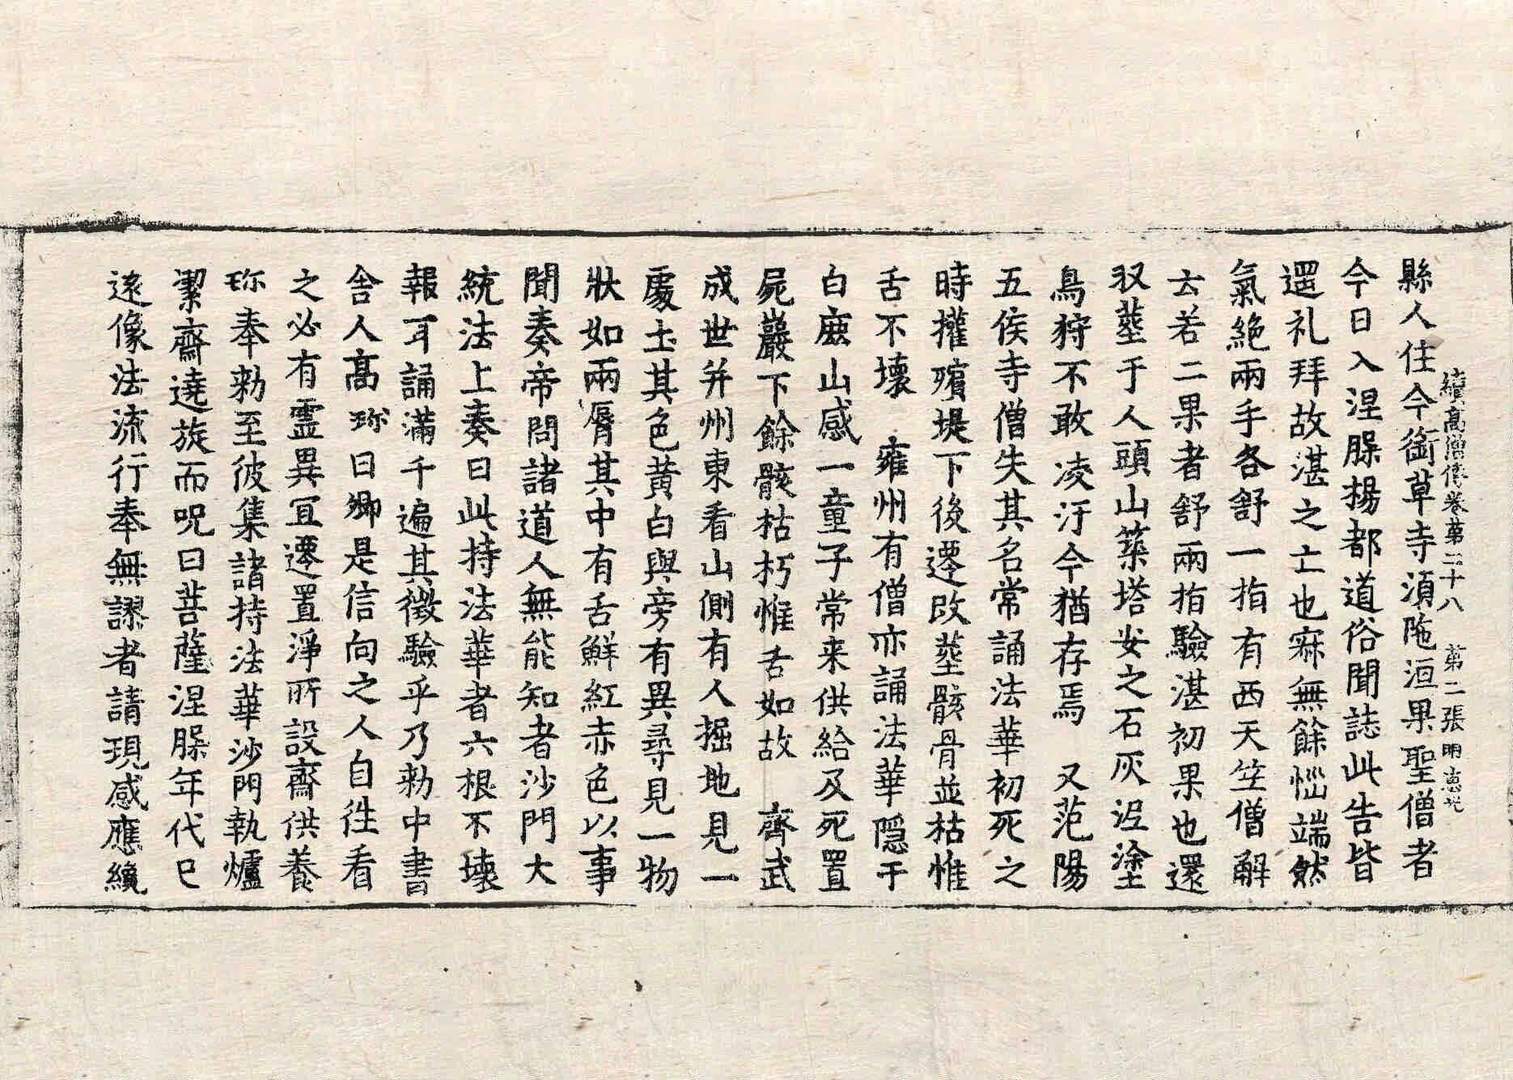 續高僧傳卷第二十八　第二張　明
縣人住今銜草寺湏陁洹果聖僧者
今日入涅槃揚都道俗聞誌此告皆
還礼拜故湛之亡也寐無餘惱端然
氣絶兩手各舒一指有西天竺僧解
云若二果者舒兩指驗湛初果也還
収塟于人頭山築塔安之石灰泥塗
鳥狩不敢凌汙今猶存焉　又范陽
五侯寺僧失其名常誦法華初死之
時攉殯堤下後遷改塟骸骨並枯惟
舌不壞　雍州有僧亦誦法華隱于
白鹿山感一童子常来供給及死置
屍巖下餘骸枯朽惟舌如故　齊武
成世并州東看山側有人掘地見一
處土其色黄白與旁有異尋見一物
狀如兩脣其中有舌鮮紅赤色以事
聞奏帝問諸道人無能知者沙門大
統法上奏曰此持法華者六根不壊
報耳誦滿千遍其徵驗乎乃勑中書
舍人髙珎曰卿是信向之人自徃看
之必有靈異冝遷置淨所設齋供養
珎奉勑至彼集諸持法華沙門執爐
潔齋遶旋而呪曰菩薩涅槃年代已
逺像法流行奉無謬者請現感應纔